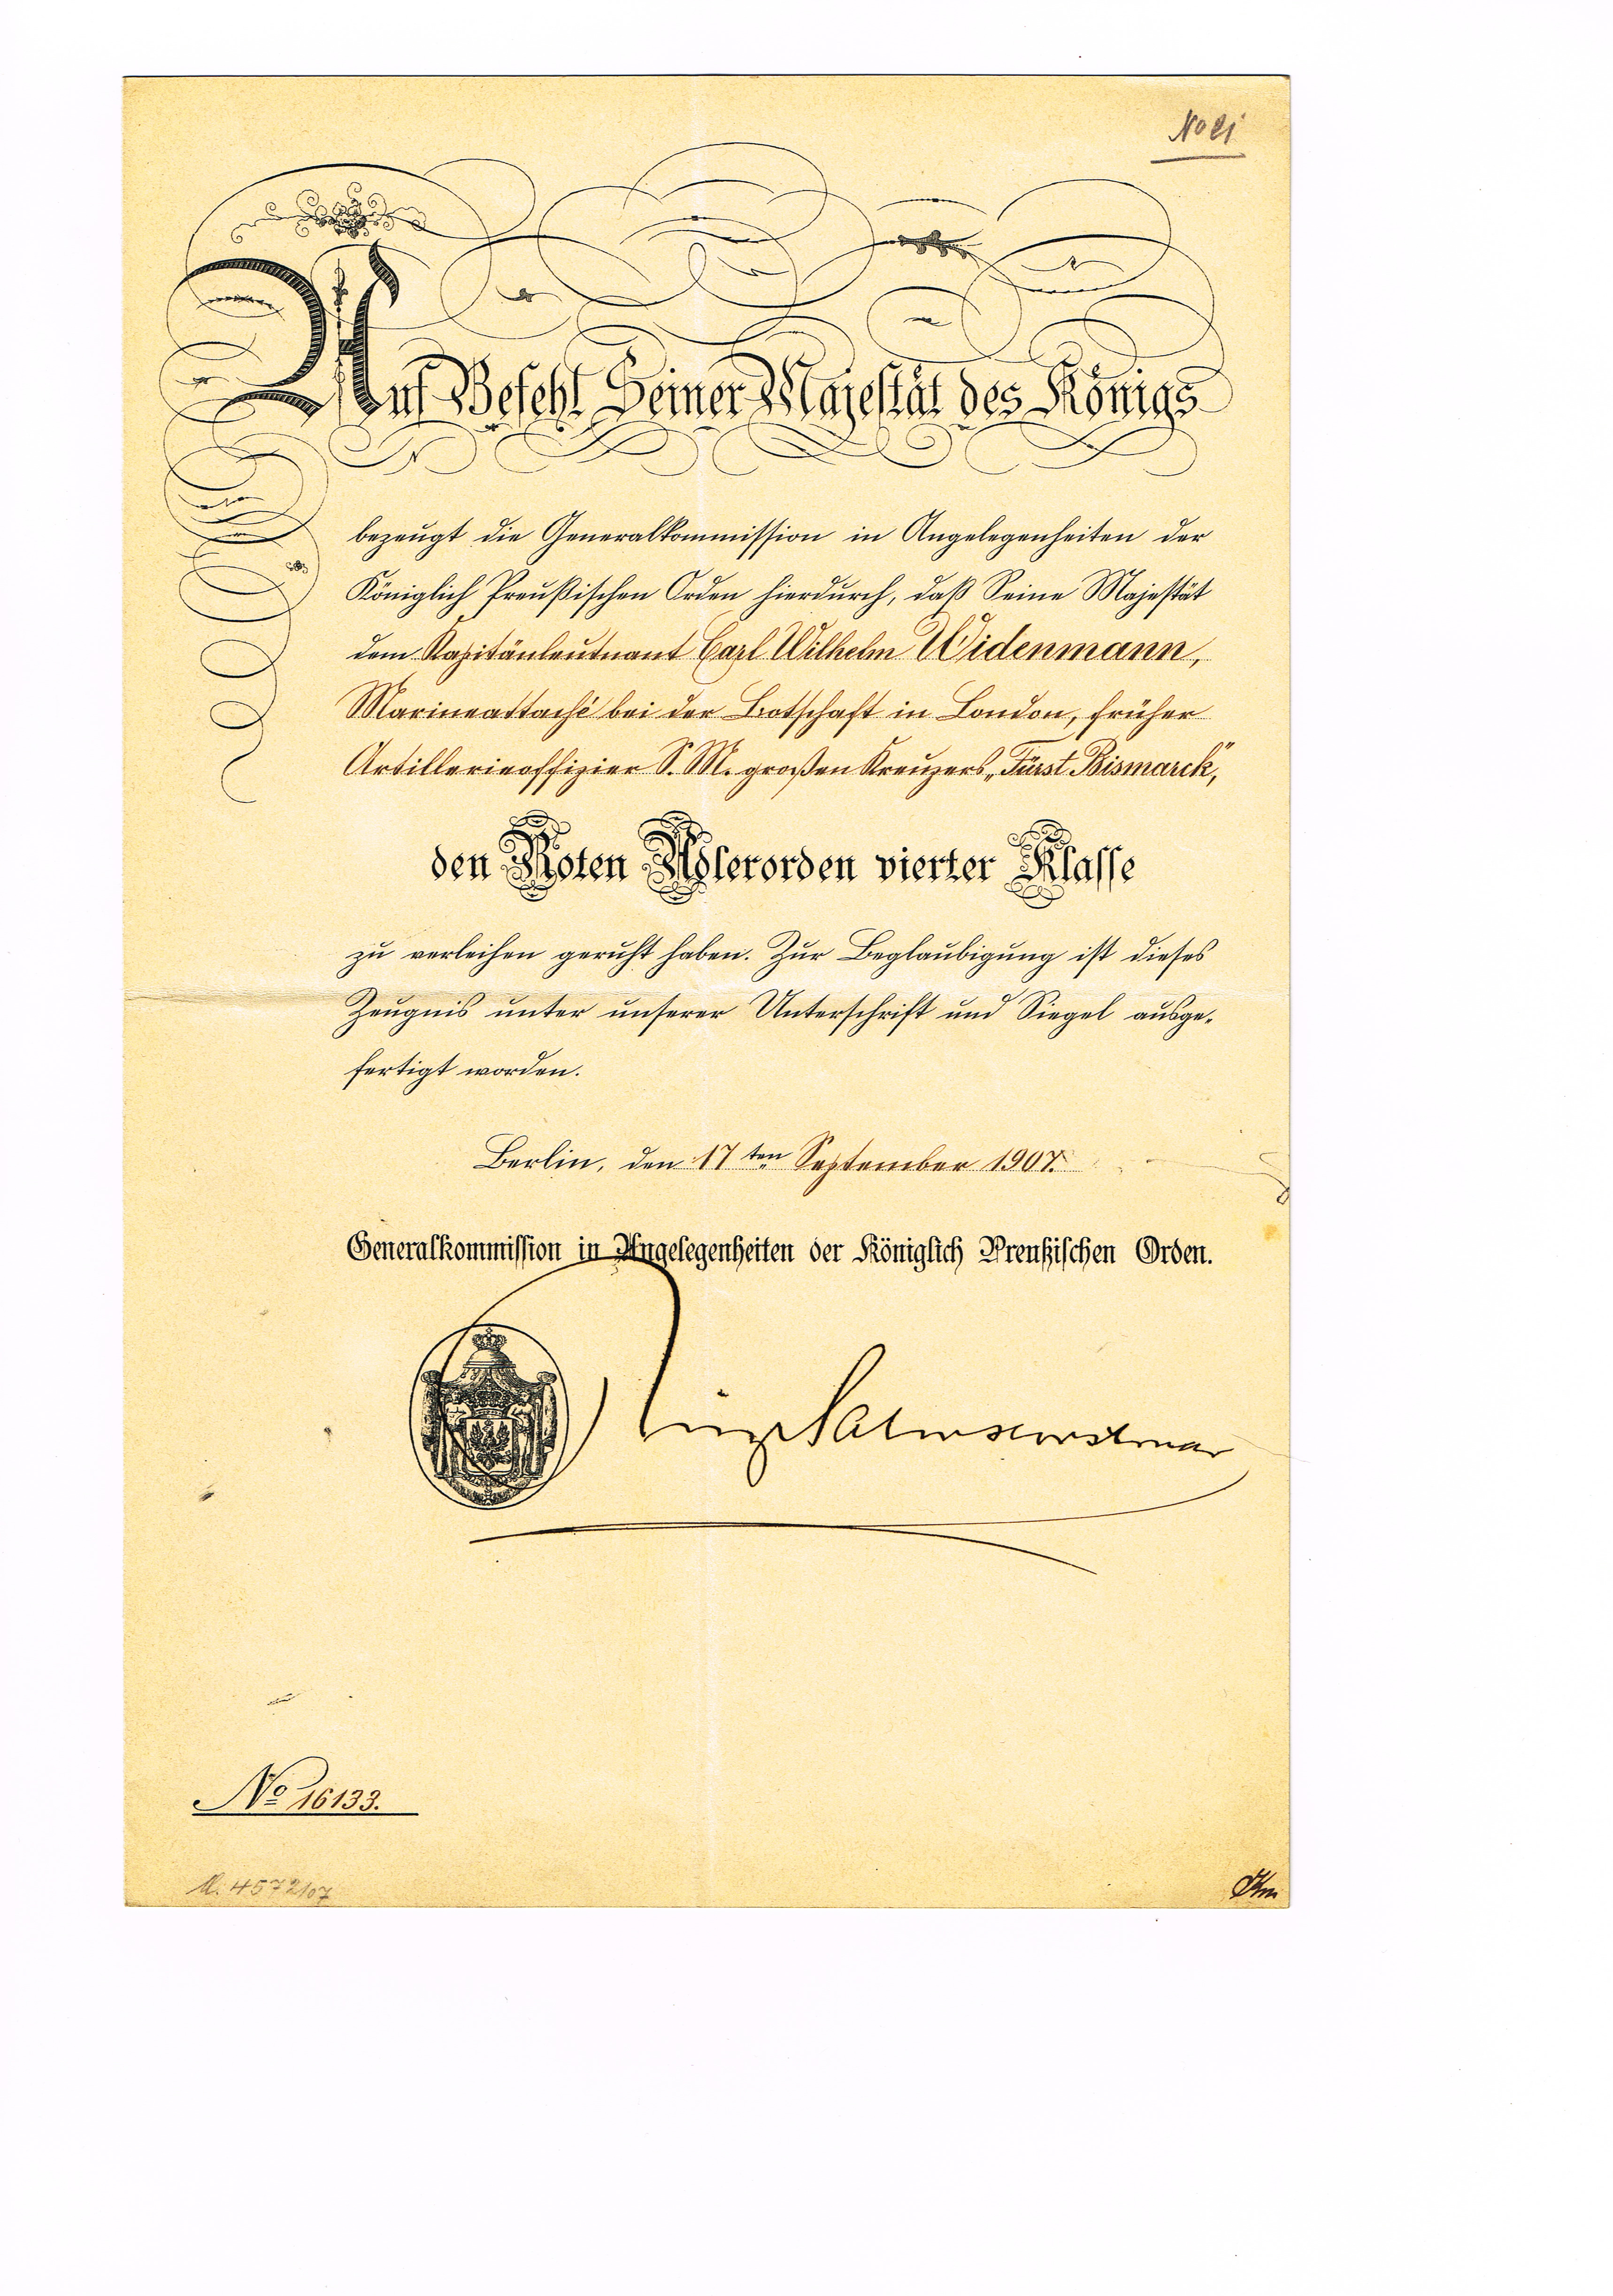 No 21
Auf Befehl Seiner Majestät des Königs
bezeugt die Generalkommission in Angelegenheiten der
Königlich Preußischen Orden hierdurch, daß Seine Majestät
dem Kapitänleutnant Carl Wilhelm Widenmann,
Marineattaché bei der Botschaft in London, früher
Artillerieoffizier S. M. großen Kreuzers „Fürst Bismarck",
den Roten Adlerorden vierter Klasse
zu verleihen geruht haben. Zur Beglaubigung ist dieses
Zeugnis unter unserer Unterschrift und Siegel ausge-
fertigt worden.
Berlin, den 17ten September 1907.
Generalkommission in Angelegenheiten der Königlich Preußischen Orden.
No 16133.
4572/07